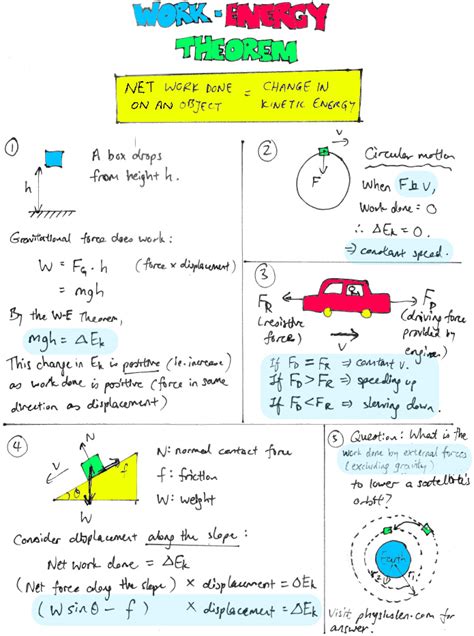 WORK-ENERGY
THEOREM
NET WORK DONE ON AN OBJECT = CHANGE IN KINETIC ENERGY
①
h
A box drops
from height h.
Gravitational force does work:
W = F_G · h (force × displacement)
= mgh
By the W-E Theorem,
mgh = ΔE_k
This change in E_k is positive (i.e. increase)
as work done is positive (force in same
direction as displacement)
②
v
F
Circular motion
When F ⊥ v,
Work done = 0
∴ ΔE_k = 0.
⇒ constant speed.
③
F_R
(resistive
force)
F_D
(driving force
provided by
engine)
If F_D = F_R ⇒ constant v.
If F_D > F_R ⇒ speeding up
If F_D < F_R ⇒ slowing down.
④
N
v
f
θ
W
N: normal contact force
f: friction
W: weight
Consider displacement along the slope:
Net work done = ΔE_k
(Net force along the slope) × displacement = ΔE_k
(W sin θ - f) × displacement = ΔE_k
⑤ Question: What is the
work done by external forces
(excluding gravity)
to lower a satellite's
orbit?
Earth
Visit physicslen.com for
answer.